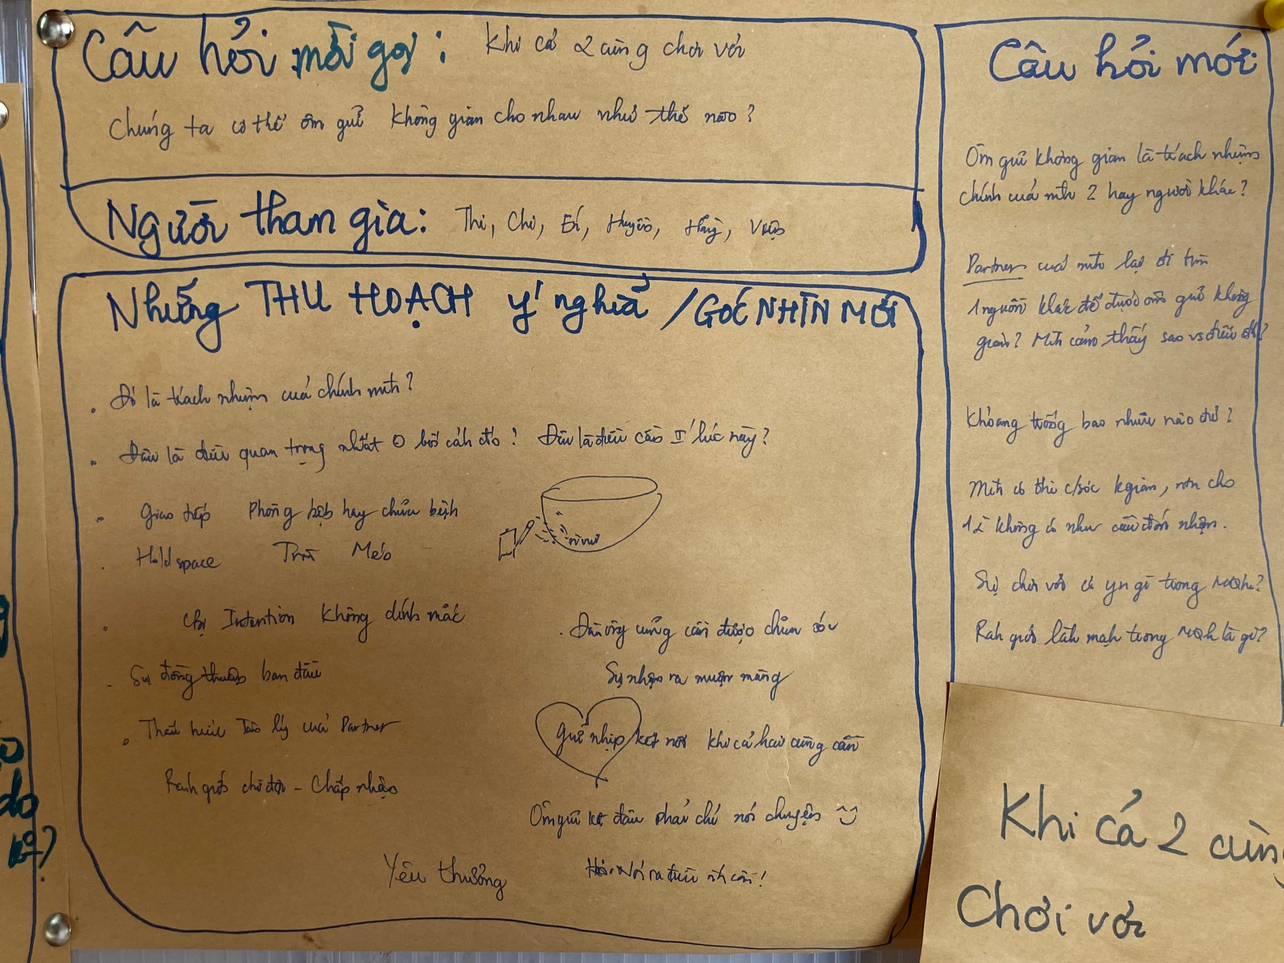 Câu hỏi mời gọi: Khi cả 2 cùng chơi vơi
Chúng ta có thể ôm giữ không gian cho nhau như thế nào?
Người tham gia: Thi, Chi, Huyền, Hằng,
Những THU HOẠCH ý nghĩa / GÓC NHÌN MỚI
. Đó là trách nhiệm của chính mình?
. Đâu là điều quan trọng nhất ở bối cảnh đó? Đâu là điều cần lúc này?
. Giao tiếp Phòng bệnh hay chữa bệnh
. Hold space
. Intention không dính mắc
. Đàn ông cũng cần được chăm sóc
- Sự đồng thuận ban đầu
Sự nhận ra muộn màng
. Thấu hiểu tâm lý của Partner
Giữ nhịp kết nối khi cả hai cùng cần
Ranh giới chờ đợi - Chấp nhận
Ôm giữ kg đâu phải chỉ nói chuyện
Yêu thương
Nói ra điều mh cần!
Câu hỏi mới
Ôm giữ không gian là trách nhiệm
chính của mình 2 hay người khác?
Partner của mình lại đi tìm
1 người khác để được ôm giữ không
gian? Mình cảm thấy sao vs điều đó?
Khoảng trống bao nhiêu nào đủ?
Mình có thì c/sóc kgian, còn cho
không có nhu cầu đón nhận.
Sự chơi vơi có ý n gì trong MQh?
Ranh giới lành mạnh trong MQh là gì?
Khi cả 2 cùng
Chơi vơi
do